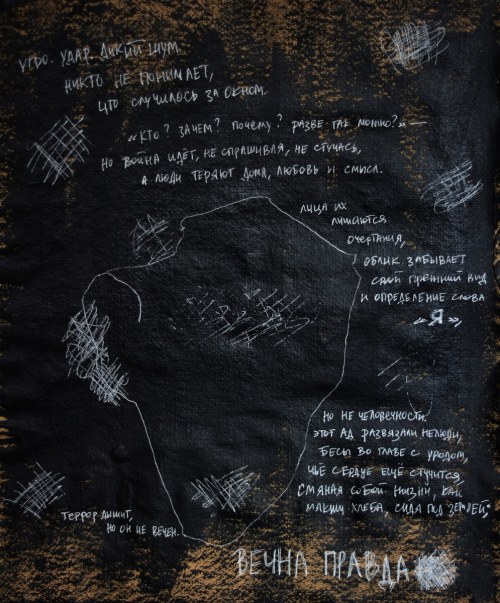 УТРО. УДАР. ДИКИЙ ШУМ.
НИКТО НЕ ПОНИМАЕТ,
ЧТО СЛУЧИЛОСЬ ЗА ОКНОМ.
„КТО? ЗАЧЕМ? ПОЧЕМУ? РАЗВЕ ТАК МОЖНО?" —
НО ВОЙНА ИДЁТ, НЕ СПРАШИВАЯ, НЕ СТУЧАСЬ,
А ЛЮДИ ТЕРЯЮТ ДОМА, ЛЮБОВЬ И СМЫСЛ.
ЛИЦА ИХ
ЛИШАЮТСЯ
ОЧЕРТАНИЯ,
ОБЛИК ЗАБЫВАЕТ
СВОЙ ПРЕЖНИЙ ВИД
И ОПРЕДЕЛЕНИЕ СЛОВА
„Я",
НО НЕ ЧЕЛОВЕЧНОСТИ.
ЭТОТ АД РАЗВЯЗАЛИ НЕЛЮДИ,
БЕСЫ ВО ГЛАВЕ С УРОДОМ,
ЧЬЁ СЕРДЦЕ ЕЩЁ СТУЧИТСЯ,
СМИНАЯ СОБОЙ ЖИЗНИ, КАК
МАКИШ ХЛЕБА, СИДЯ ПОД ЗЕМЛЕЙ,
ТЕРРОР ДЫШИТ,
НО ОН НЕ ВЕЧЕН.
ВЕЧНА ПРАВДА